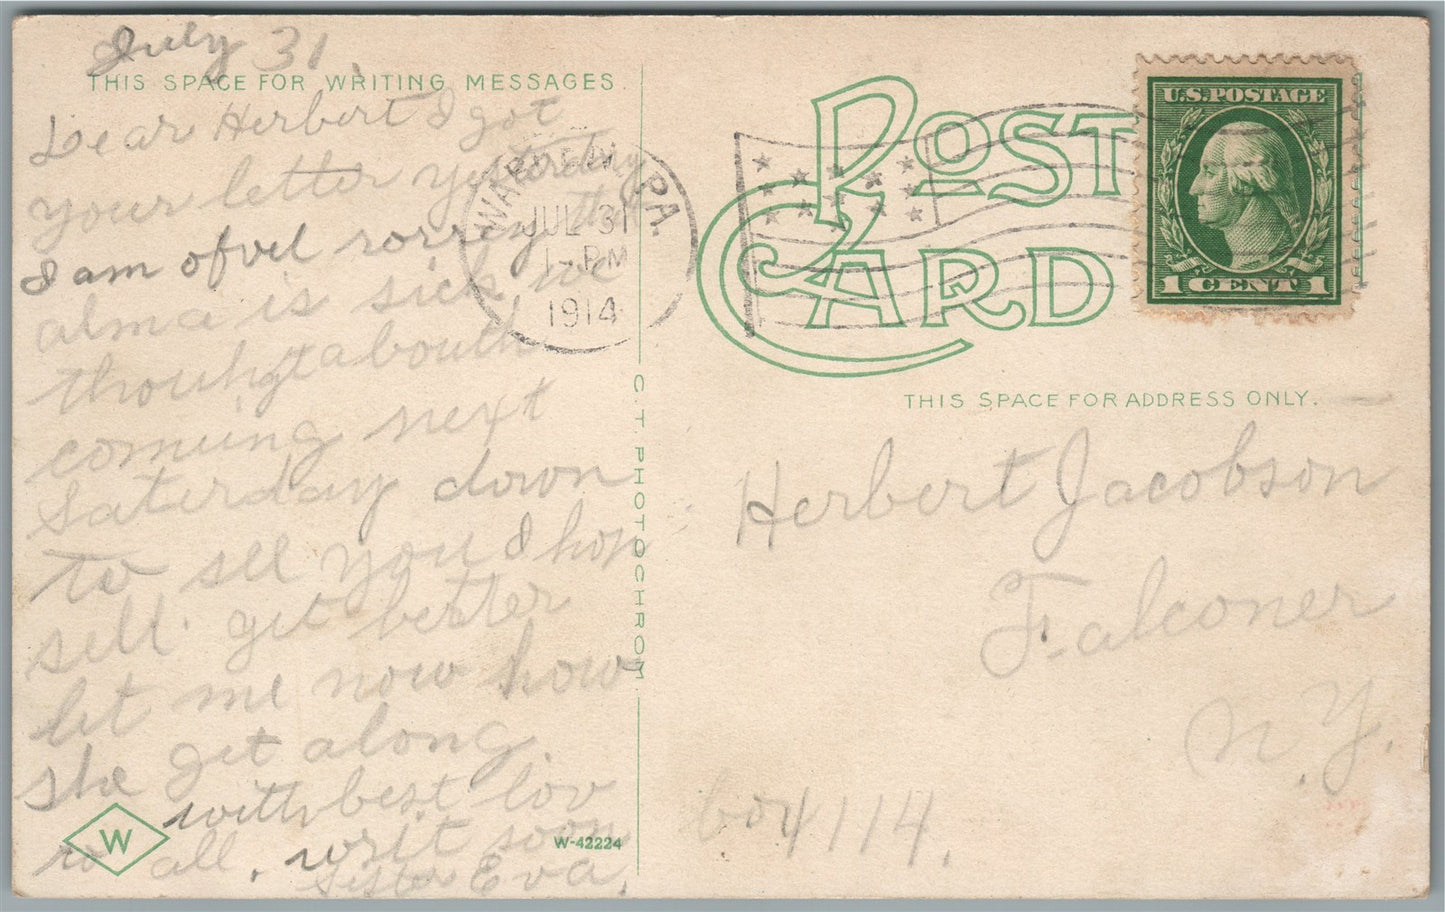 July 31.
THIS SPACE FOR WRITING MESSAGES.
Dear Herbert I got
your letter yesterday
I am ofvel sorrey that
alma is sick, we
thouhgt abouth
coming next
Saturday down
to sell you I hop
sell. get better
let me now how
she get along.
with best lov
to all. writ soon
Sister Eva.
W
W-42224
C. T. PHOTOCHROM
WARREN, PA.
JUL 31
1-PM
1914
POST
CARD
U.S. POSTAGE
1 CENT 1
THIS SPACE FOR ADDRESS ONLY.
Herbert Jacobson
Falconer
N.Y.
114.